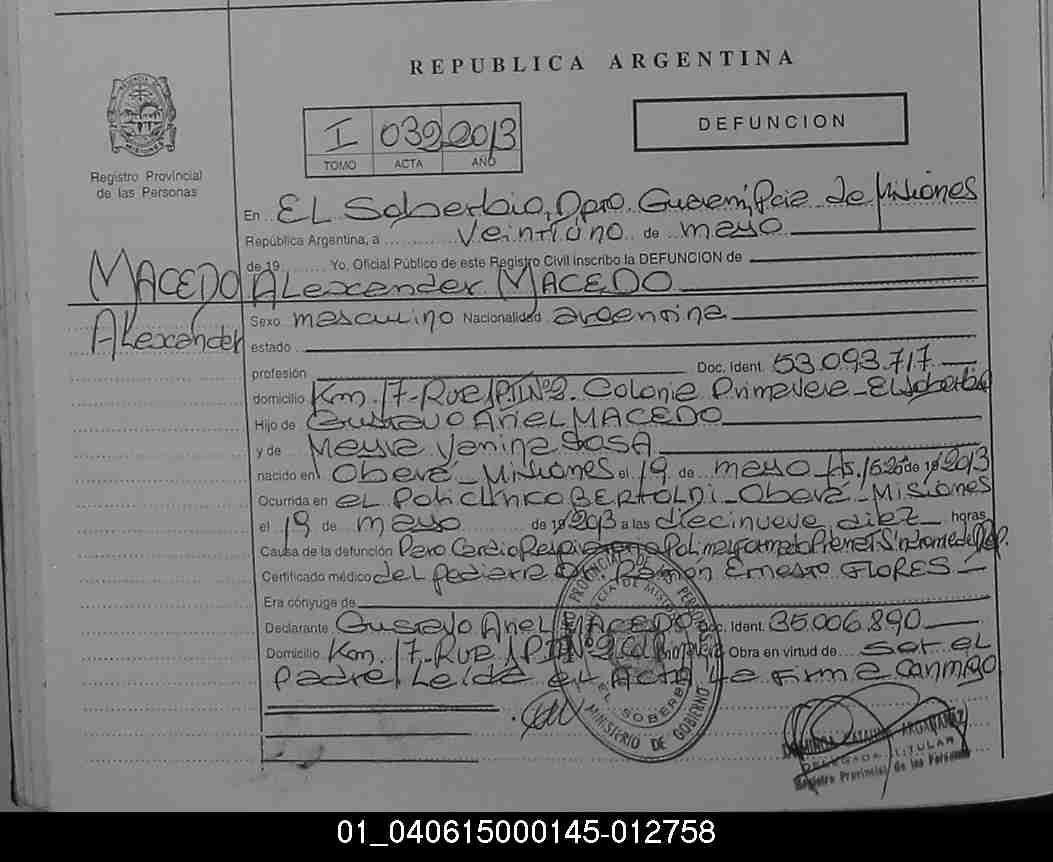 REPUBLICA ARGENTINA
I 032 2013
TOMO ACTA AÑO
DEFUNCION
Registro Provincial
de las Personas
En EL Soberbio, Dpto. Guaraní, Pcia de Misiones
República Argentina, a veintiuno de mayo
de 19 Yo, Oficial Público de este Registro Civil inscribo la DEFUNCION de
MACEDO ALexander MACEDO
ALexander
Sexo masculino Nacionalidad argentina
estado
profesión Doc. Ident. 53.093.717
domicilio Km. 17-Ruta PciaL Nº2. Colonia Primavera - EL Soberbio
Hijo de Gustavo Ariel MACEDO
y de Mayra Yanina SOSA
nacido en Oberá - Misiones el 19 de mayo Hs. 16 25 de 19 2013
Ocurrida en el Policlínico BERTOLDI - Oberá - Misiones
el 19 de mayo de 19 2013 a las diecinueve, diez horas
Causa de la defunción Paro Cardio Respiratorio Polimalformado Síndrome de
Certificado médico del pediatra Dr. Ramón Ernesto FLORES
Era cónyuge de
Declarante Gustavo Ariel MACEDO Doc. Ident. 35.006.890
Domicilio Km. 17-Ruta Nº2 Col Primavera Obra en virtud de ser el
padre Leída el Acta La firma conmigo
REGISTRO PROVINCIAL DE LAS PERSONAS
PROVINCIA DE MISIONES
EL SOBERBIO
MINISTERIO DE GOBIERNO
DELEGADA TITULAR
Registro Provincial de las Personas
01_040615000145-012758